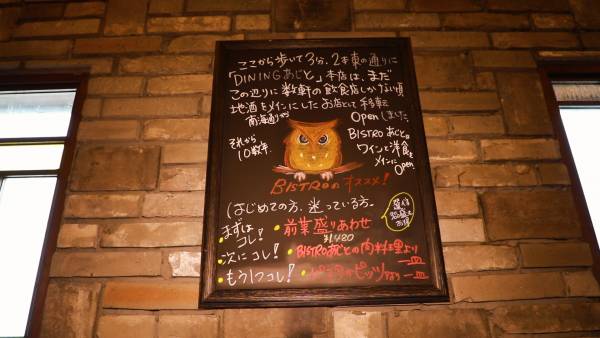 ここから歩いて3分、2本東の通りに
「DININGあじと」本店は、まだ
この辺りに数軒の飲食店しかない頃
地酒をメインにしたお店として移転
南海通りから
Openしました。
それから
10数年、
BISTROあじとは
ワインと洋食を
メインに
Open
BISTROのオススメ!
はじめての方、迷っている方。
まずは
コレ!
・前菜盛り合わせ
¥1480
次にコレ!
・BISTROあじとの肉料理より
一皿
もう1つコレ!
ピッツァより一皿